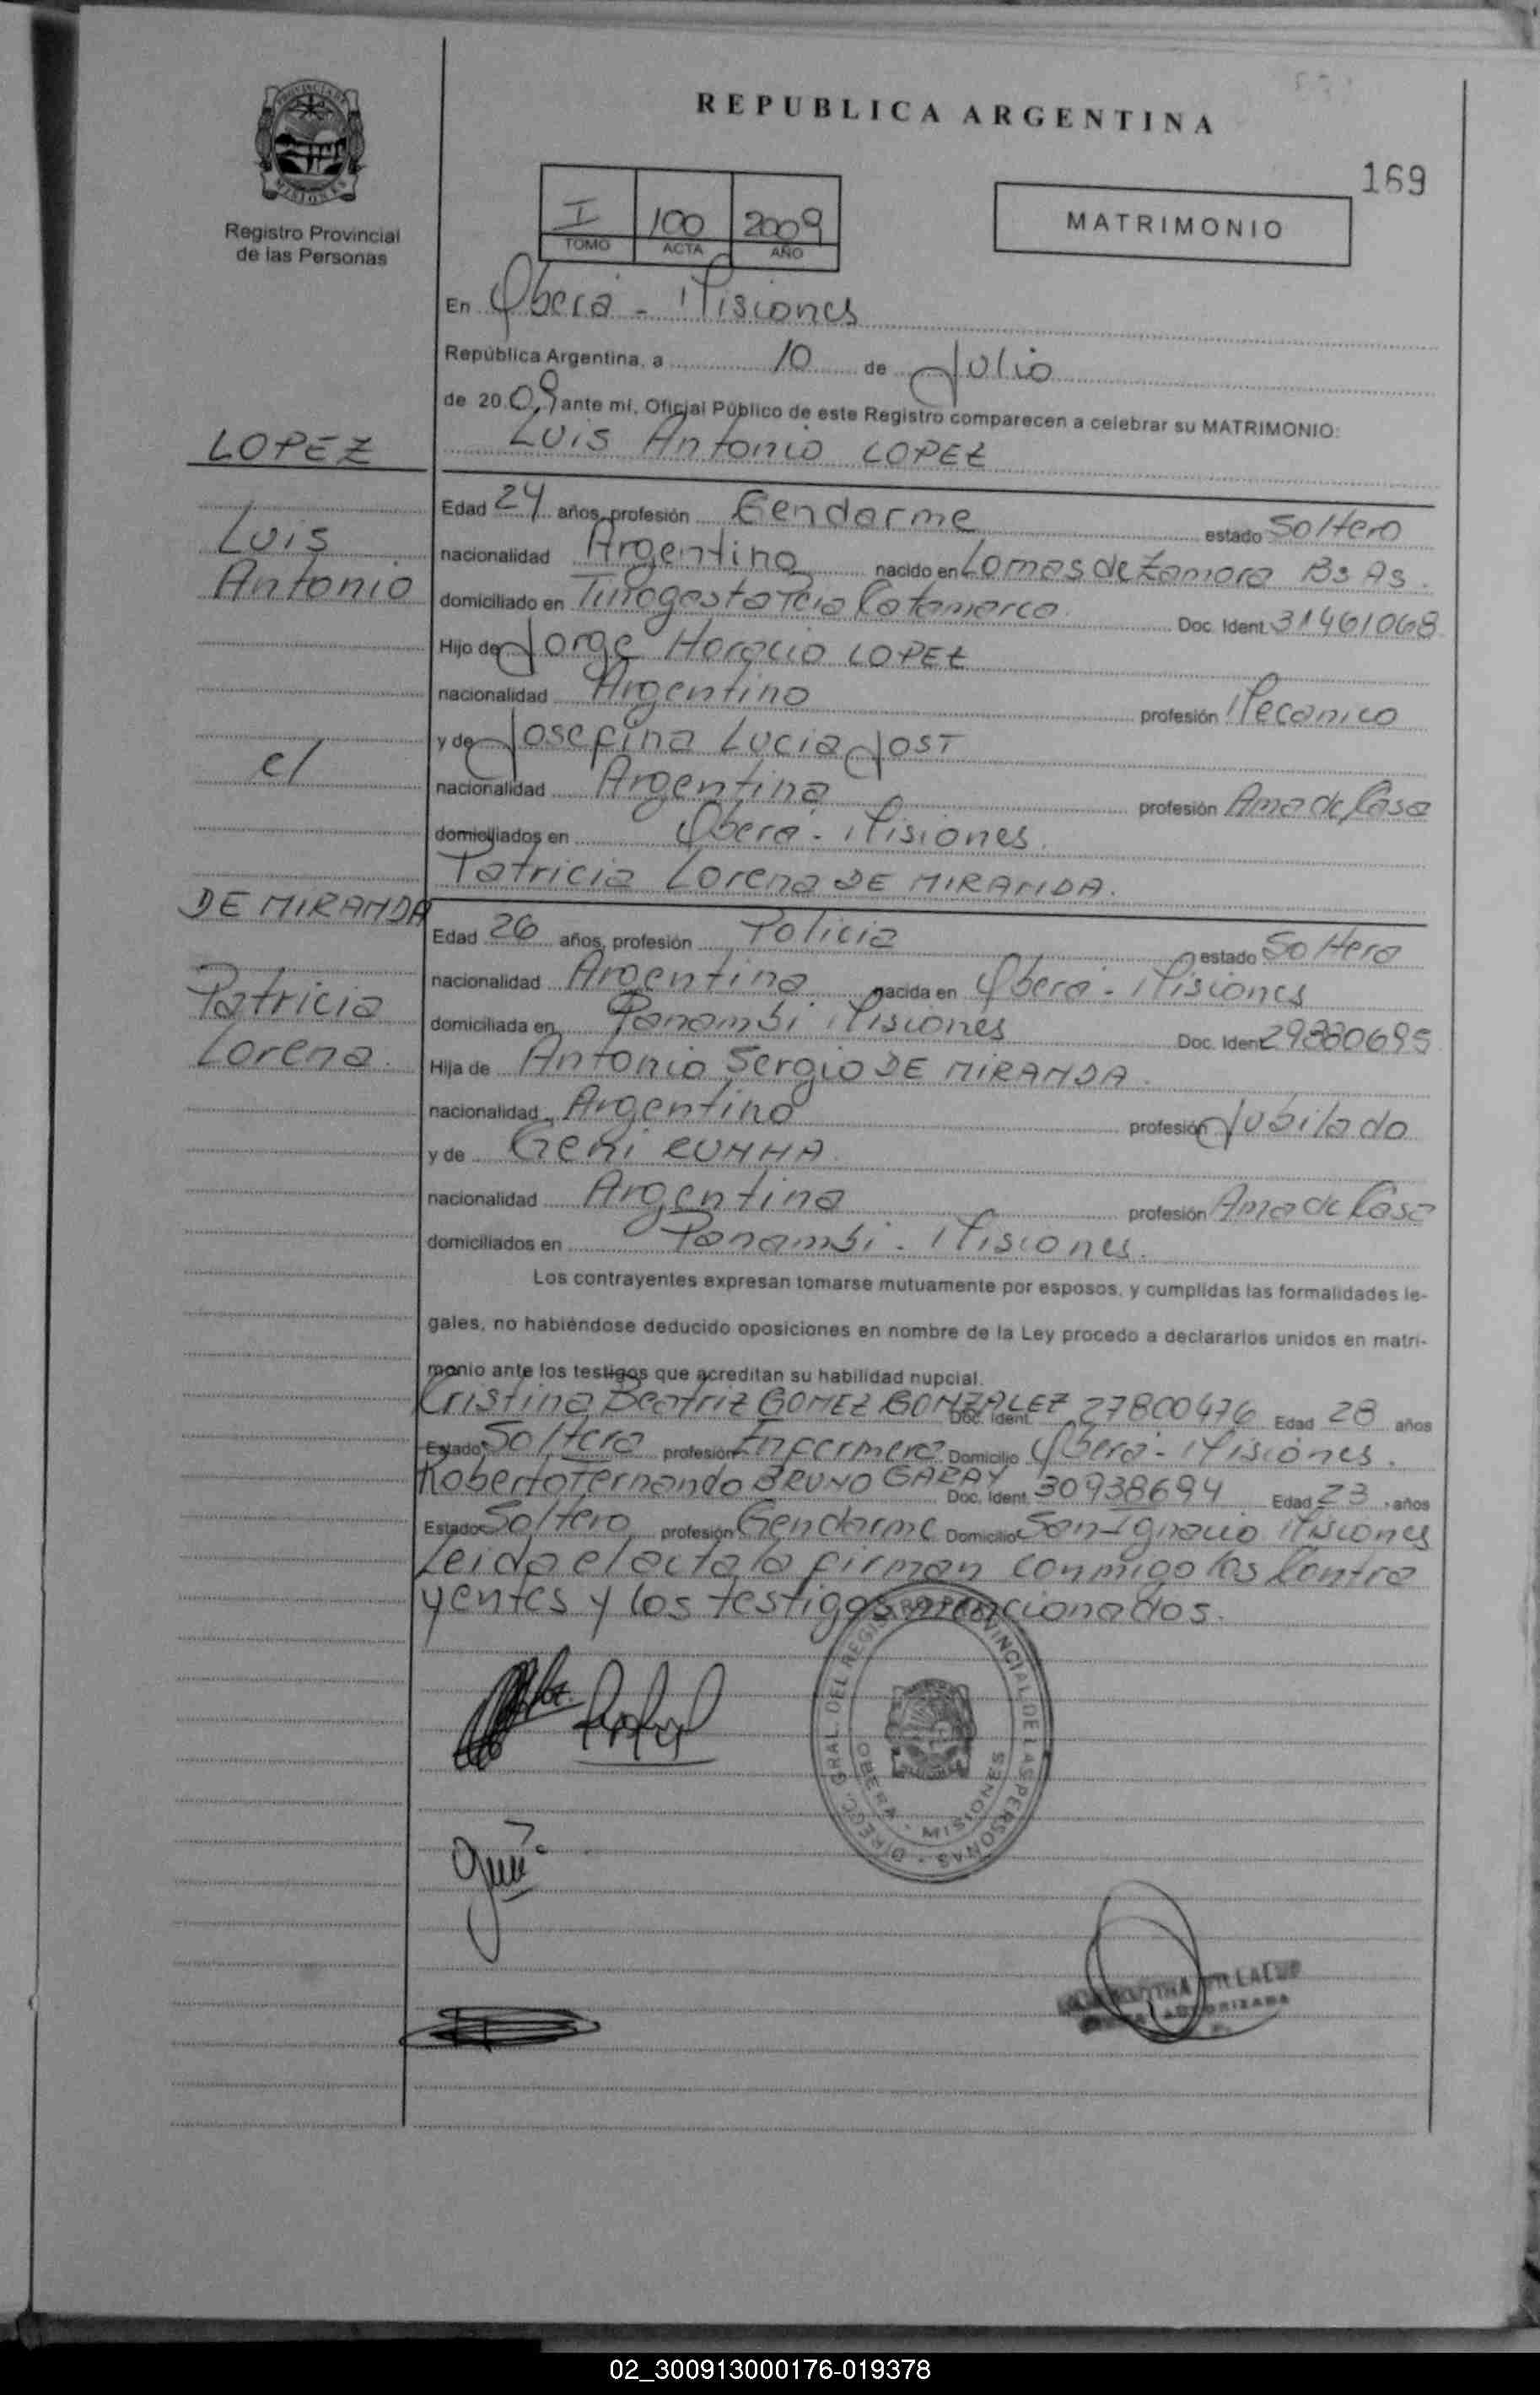 REPUBLICA ARGENTINA
169
PROVINCIA DE
MISIONES
Registro Provincial
de las Personas
I 100 2009
TOMO ACTA AÑO
MATRIMONIO
En Oberá - Misiones
República Argentina, a 10 de Julio
de 2009 ante mí, Oficial Público de este Registro comparecen a celebrar su MATRIMONIO:
LOPEZ
Luis Antonio LOPEZ
Edad 24 años, profesión Gendarme estado Soltero
Luis
nacionalidad Argentina nacido en Lomas de Zamora Bs As.
Antonio
domiciliado en Pcia Catamarca Doc. Ident. 31461068
Hijo de Jorge Horacio LOPEZ
nacionalidad Argentino profesión Mecanico
y de Josefina Lucia JOST
c/
nacionalidad Argentina profesión Ama de Casa
domiciliados en Oberá - Misiones.
Patricia Lorena DE MIRANDA.
DE MIRANDA
Edad 26 años, profesión Policia estado Soltera
Patricia
nacionalidad Argentina nacida en Oberá - Misiones
domiciliada en Panambi Misiones Doc. Ident. 29880695
Lorena.
Hija de Antonio Sergio DE MIRANDA.
nacionalidad Argentino profesión Jubilado
y de Geni CUNHA.
nacionalidad Argentina profesión Ama de Casa
domiciliados en Panambi - Misiones.
Los contrayentes expresan tomarse mutuamente por esposos, y cumplidas las formalidades le-
gales, no habiéndose deducido oposiciones en nombre de la Ley procedo a declararlos unidos en matri-
monio ante los testigos que acreditan su habilidad nupcial.
Cristina Beatriz GOMEZ GONZALEZ Doc. Ident. 27800476 Edad 28 años
Estado Soltera profesión Enfermera Domicilio Oberá - Misiones.
Roberto Fernando BRUNO GARAY Doc. Ident. 30938694 Edad 23 años
Estado Soltero profesión Gendarme Domicilio San Ignacio Misiones
Leida el acta la firman conmigo los Contra
yentes y los testigos mencionados.
DIRECC. GRAL. DEL REGISTRO PROVINCIAL DE LAS PERSONAS
OBERA - MISIONES
02_300913000176-019378